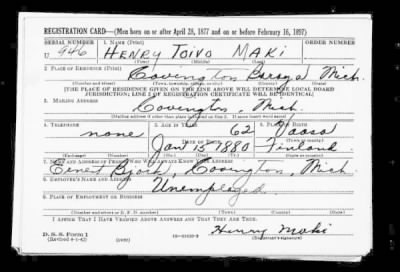 REGISTRATION CARD—(Men born on or after April 28, 1877 and on or before February 16, 1897)
SERIAL NUMBER 1. NAME (Print) ORDER NUMBER
U 946 HENRY TOIVO MAKI
(First) (Middle) (Last)
2. PLACE OF RESIDENCE (Print)
Covington Baraga Mich.
(Number and street) (Town, township, village, or city) (County) (State)
[THE PLACE OF RESIDENCE GIVEN ON THE LINE ABOVE WILL DETERMINE LOCAL BOARD
JURISDICTION; LINE 2 OF REGISTRATION CERTIFICATE WILL BE IDENTICAL]
3. MAILING ADDRESS
Covington, Mich.
[Mailing address if other than place indicated on line 2. If same insert word same]
4. TELEPHONE 5. AGE IN YEARS 6. PLACE OF BIRTH
none 62 Vaasa
DATE OF BIRTH (Town or county)
Jan 15 1880 Finland
(Exchange) (Number) (Mo.) (Day) (Yr.) (State or country)
7. NAME AND ADDRESS OF PERSON WHO WILL ALWAYS KNOW YOUR ADDRESS
Ernest Bjork, Covington, Mich
8. EMPLOYER'S NAME AND ADDRESS
Unemployed.
9. PLACE OF EMPLOYMENT OR BUSINESS
(Number and street or R. F. D. number) (Town) (County) (State)
I AFFIRM THAT I HAVE VERIFIED ABOVE ANSWERS AND THAT THEY ARE TRUE.
D. S. S. Form 1
(Revised 4-1-42) (over) Henry Maki
(Registrant's signature)